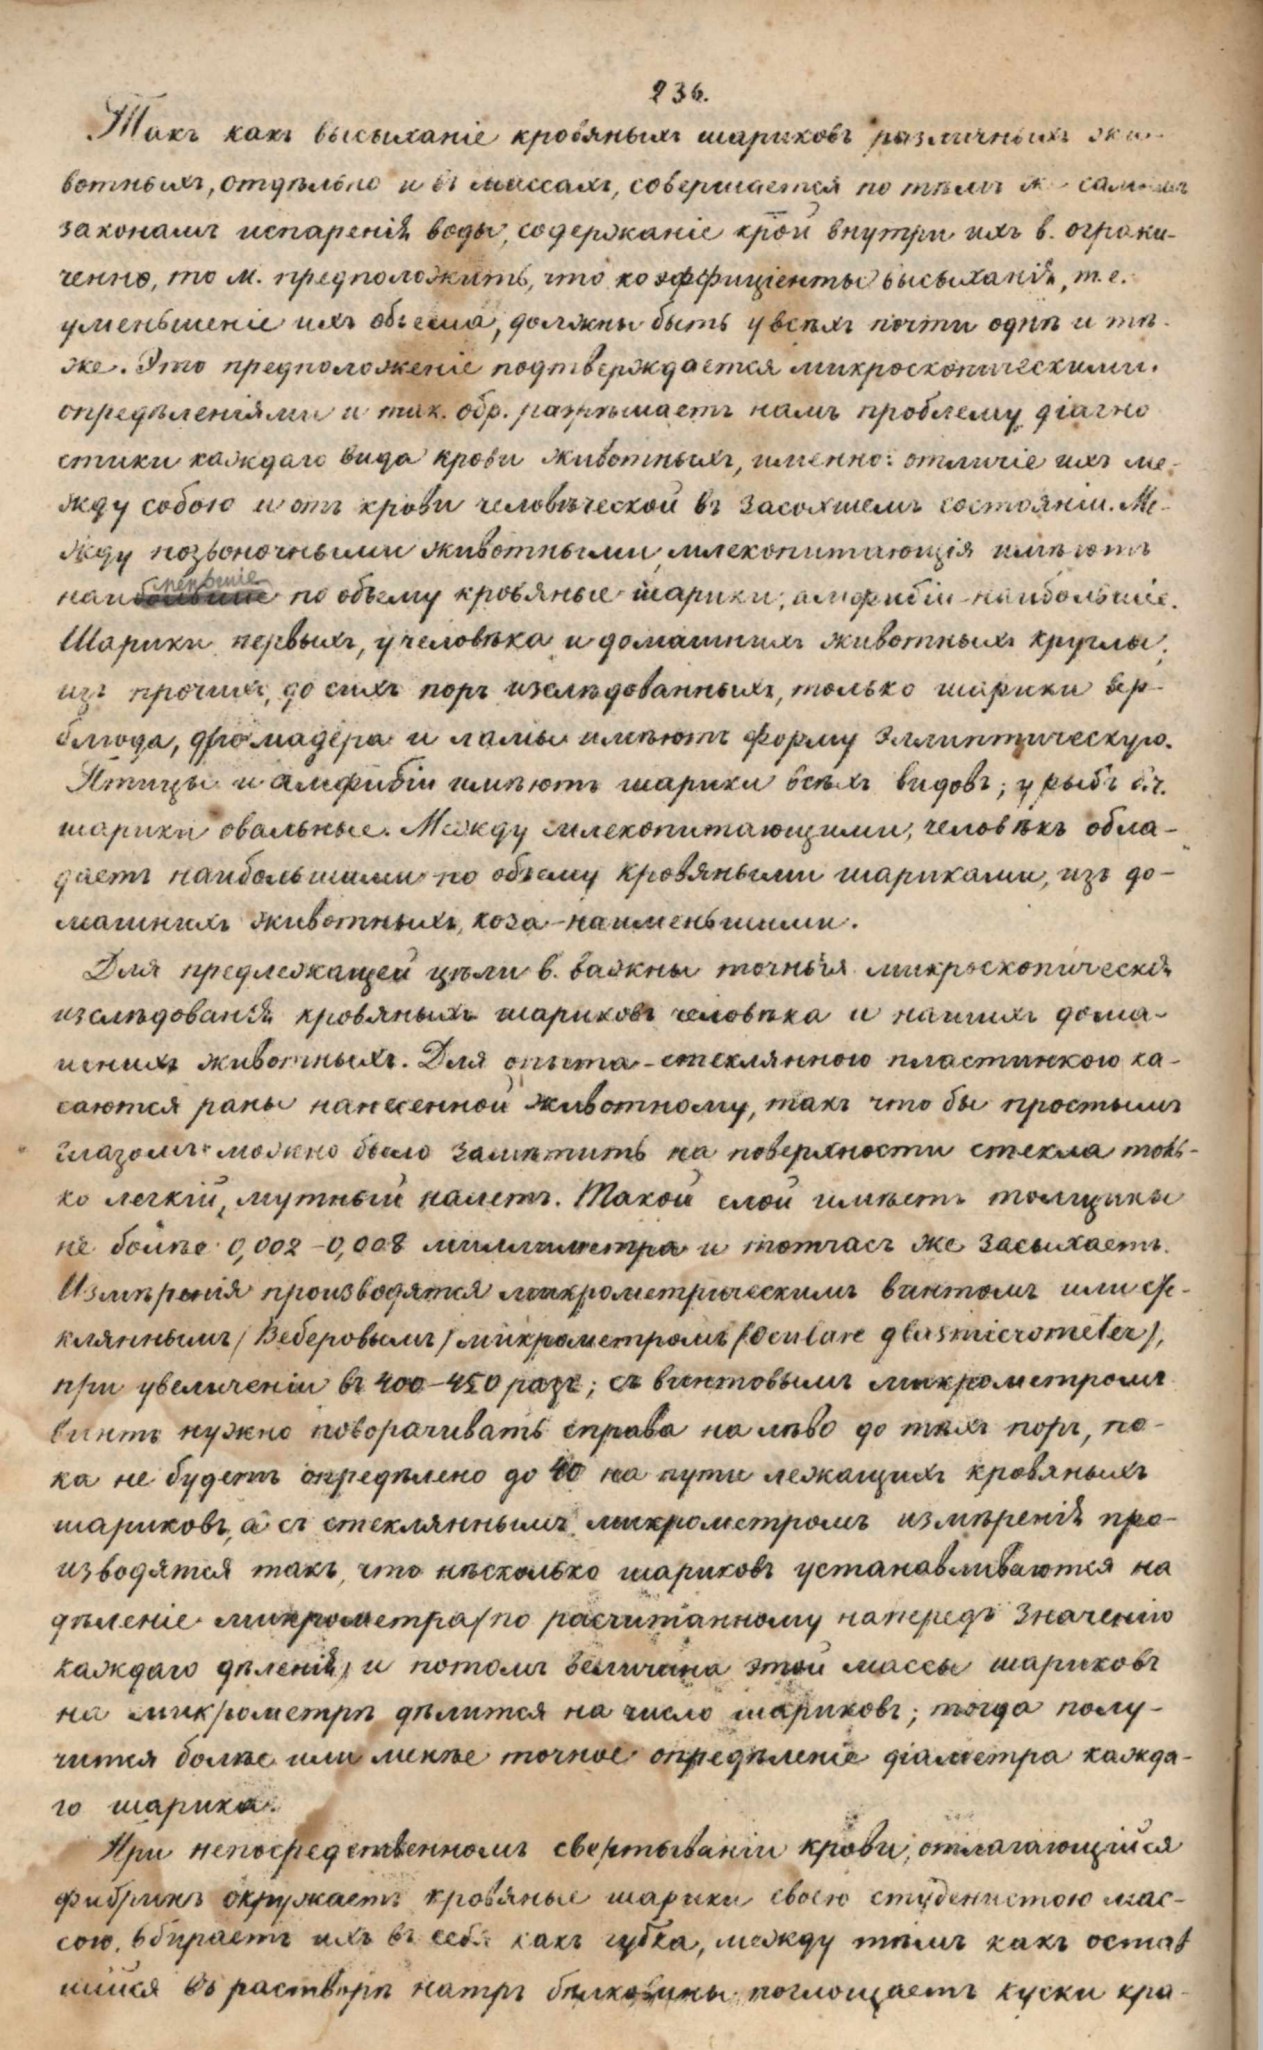 236.
Такъ какъ высыханіе кровяныхъ шариковъ различныхъ жи-
вотныхъ, отдѣльно и въ массахъ, совершается по тѣмъ ж самымъ
законамъ испаренія воды, содержаніе крой внутри ихъ в. ограни-
ченно, то м. предположить, что коэффиціенты высыханія, т.е.
уменьшеніе ихъ объема, должны быть у всѣхъ почти однѣ и тѣ-
же. Это предположеніе подтверждается микроскопическими.
опредѣленіями и так. обр. разрѣшаетъ намъ проблему діагно
стики каждаго вида крови животныхъ, именно: отличіе ихъ ме-
жду собою и отъ крови человѣческой въ засохшемъ состояніи. Ме-
жду позвоночными животными, млекопитающія имѣютъ
наименьшіе по объему кровяные шарики, амфибіи - наибольшіе.
Шарики первыхъ, у человѣка и домашнихъ животныхъ круглы;
изъ прочихъ, до сихъ поръ изслѣдованныхъ, только шарики вер-
блюда, дромадера и ламы имѣютъ форму эллиптическую.
Птицы и амфибіи имѣютъ шарики всѣхъ видовъ; у рыбъ б.ч.
шарики овальные. Между млекопитающими, человѣкъ обла-
даетъ наибольшими по объему кровяными шариками, изъ до-
машнихъ животныхъ, коза - наименьшими.
Для предлежащей цѣли в. важны точныя микроскопическія
изслѣдованія кровяныхъ шариковъ человѣка и нашихъ дома-
шнихъ животныхъ. Для опыта - стеклянною пластинкою ка-
саются раны нанесенной животному, такъ что бы простымъ
глазомъ можно было замѣтить на поверхности стекла толь-
ко легкій, мутный налетъ. Такой слой имѣетъ толщины
не болѣе 0,002 - 0,008 миллиметра и тотчасъ же засыхаетъ.
Измѣренія производятся микрометрическимъ винтомъ или сте-
кляннымъ /Веберовымъ/ микрометромъ /Oculare glasmicrometer/,
при увеличеніи въ 400 - 450 разъ; съ винтовымъ микрометромъ
винтъ нужно поворачивать справа на лѣво до тѣхъ поръ, по-
ка не будетъ опредѣлено до 40 на пути лежащихъ кровяныхъ
шариковъ, а съ стекляннымъ микрометромъ измѣренія про-
изводятся такъ, что нѣсколько шариковъ устанавливаются на
дѣленіе микрометра /по расчитанному напередъ значенію
каждаго дѣленія/ и потомъ величина этой массы шариковъ
на микрометрѣ дѣлится на число шариковъ; тогда полу-
чится болѣе или менѣе точное опредѣленіе діаметра каждa-
го шарика.
При непосредственномъ свертываніи крови, отлагающійся
фибринъ окружаетъ кровяные шарики своею студенистою мас-
сою, вбираетъ ихъ въ себя какъ губка, между тѣмъ какъ остав
шійся въ растворѣ натръ бѣлковины поглощаетъ куски кра-